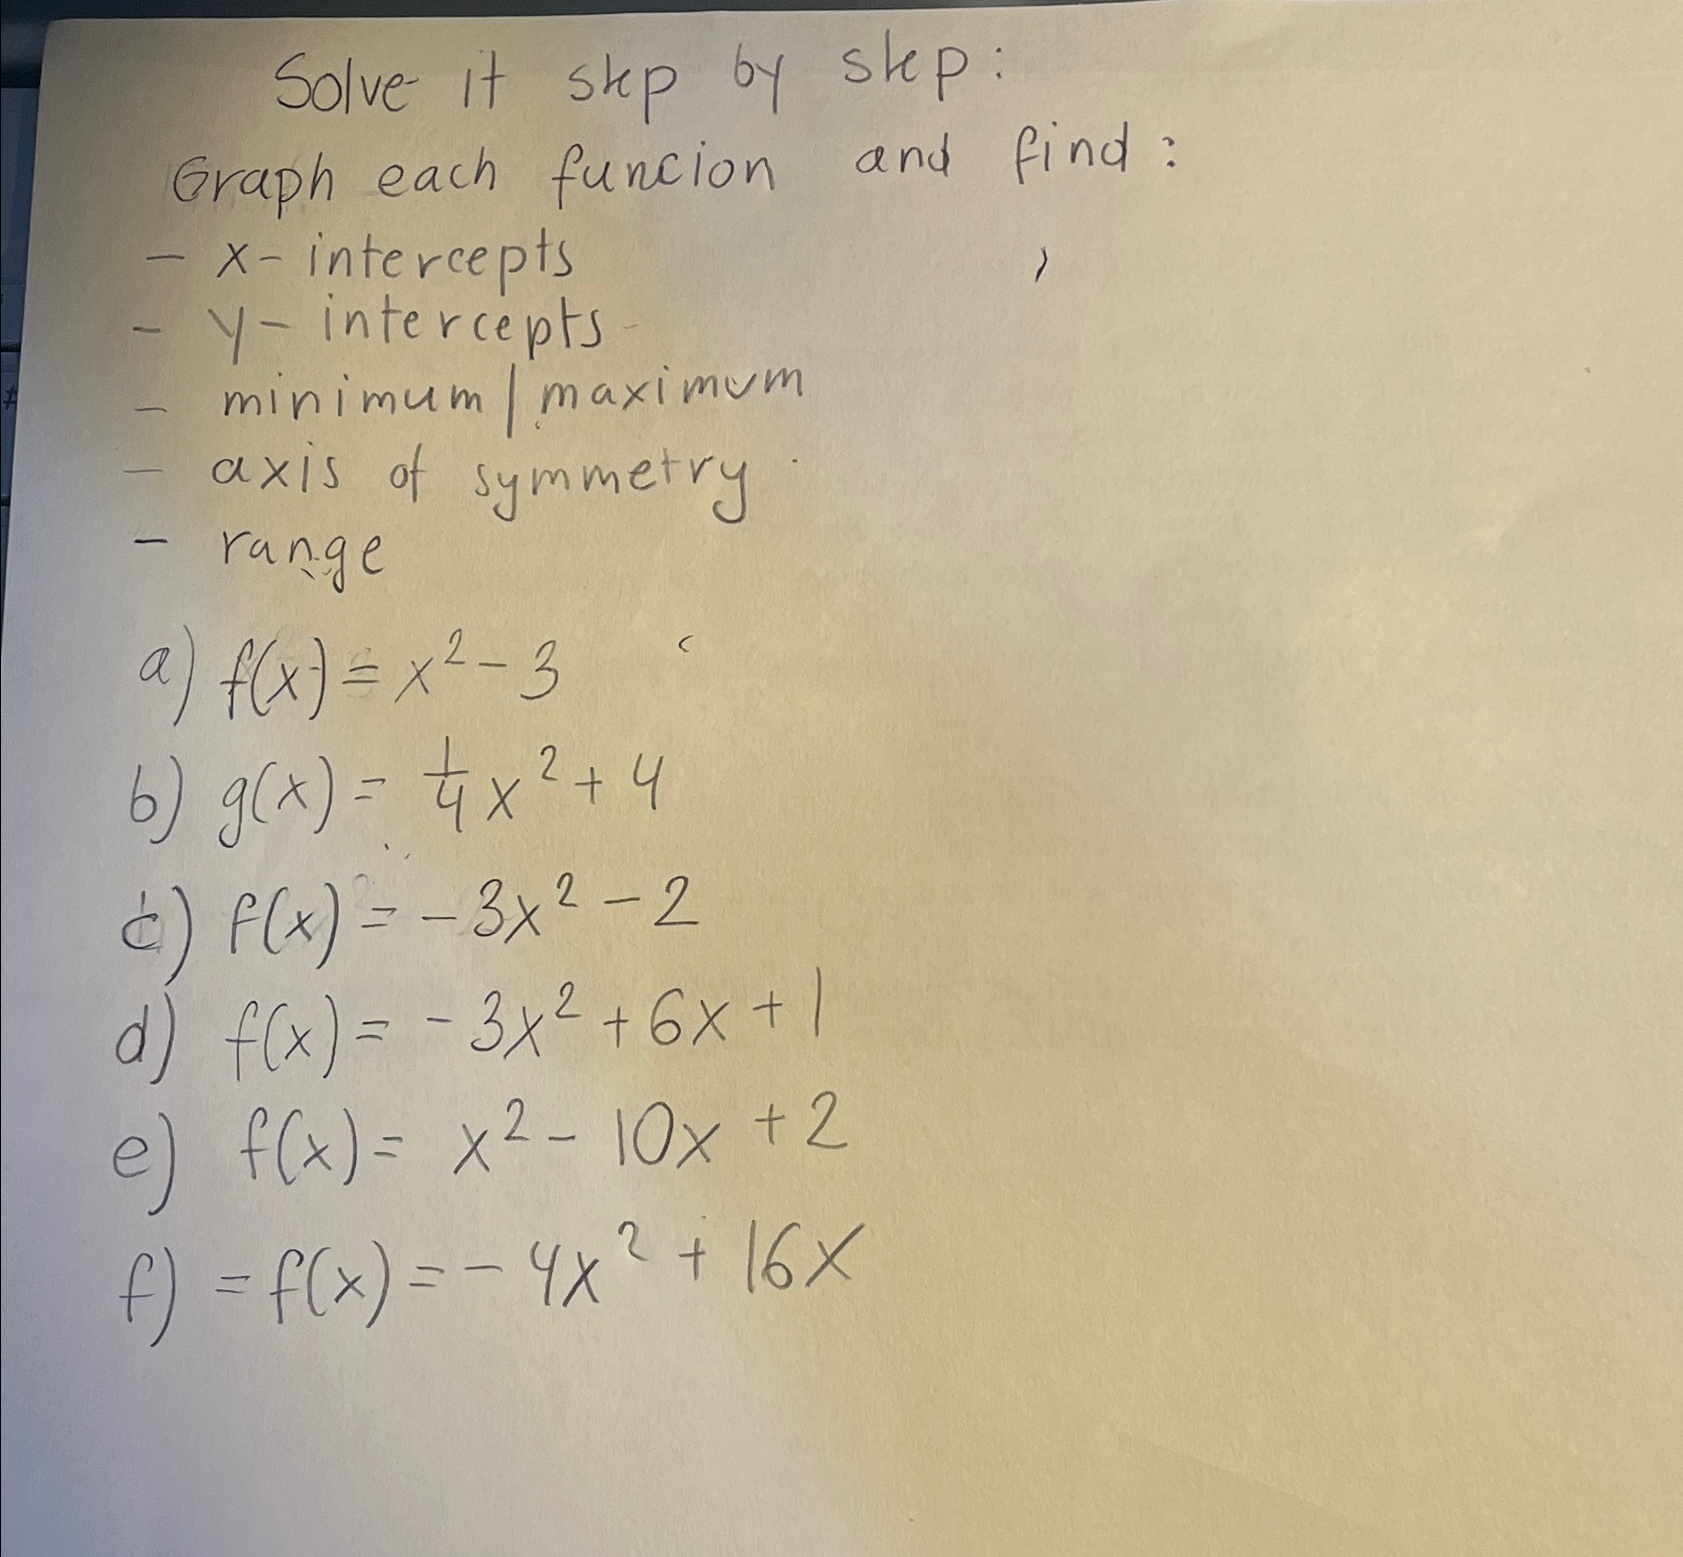 Solve it step by step:
Graph each funcion and find:
- x- intercepts
- y- intercepts
- minimum/maximum
- axis of symmetry
- range
a) f(x) = x² - 3
b) g(x) = 1/4 x² + 4
c) f(x) = -3x² - 2
d) f(x) = -3x² + 6x + 1
e) f(x) = x² - 10x + 2
f) = f(x) = -4x² + 16x